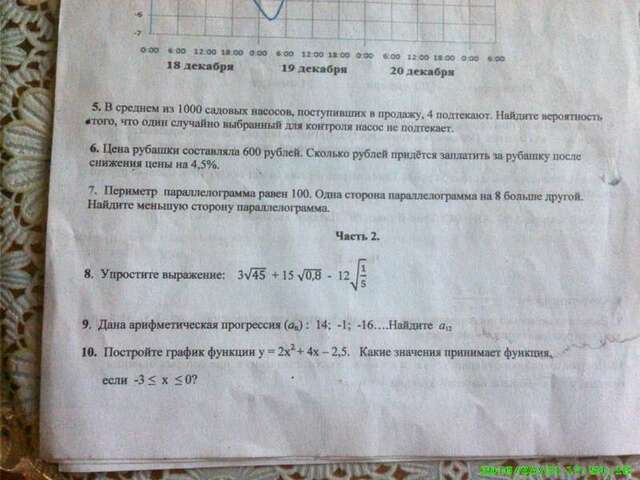 -6
-7
0:00 6:00 12:00 18:00 0:00 6:00 12:00 18:00 0:00 6:00 12:00 18:00 0:00 6:00
18 декабря 19 декабря 20 декабря
5. В среднем из 1000 садовых насосов, поступивших в продажу, 4 подтекают. Найдите вероятность
того, что один случайно выбранный для контроля насос не подтекает.
6. Цена рубашки составляла 600 рублей. Сколько рублей придётся заплатить за рубашку после
снижения цены на 4,5%.
7. Периметр параллелограмма равен 100. Одна сторона параллелограмма на 8 больше другой.
Найдите меньшую сторону параллелограмма.
Часть 2.
8. Упростите выражение: 3√45 + 15 √0,8 - 12√(1/5)
9. Дана арифметическая прогрессия (aₙ) : 14; -1; -16….Найдите a₁₂
10. Постройте график функции y = 2x² + 4x – 2,5. Какие значения принимает функция,
если -3 ≤ x ≤ 0?